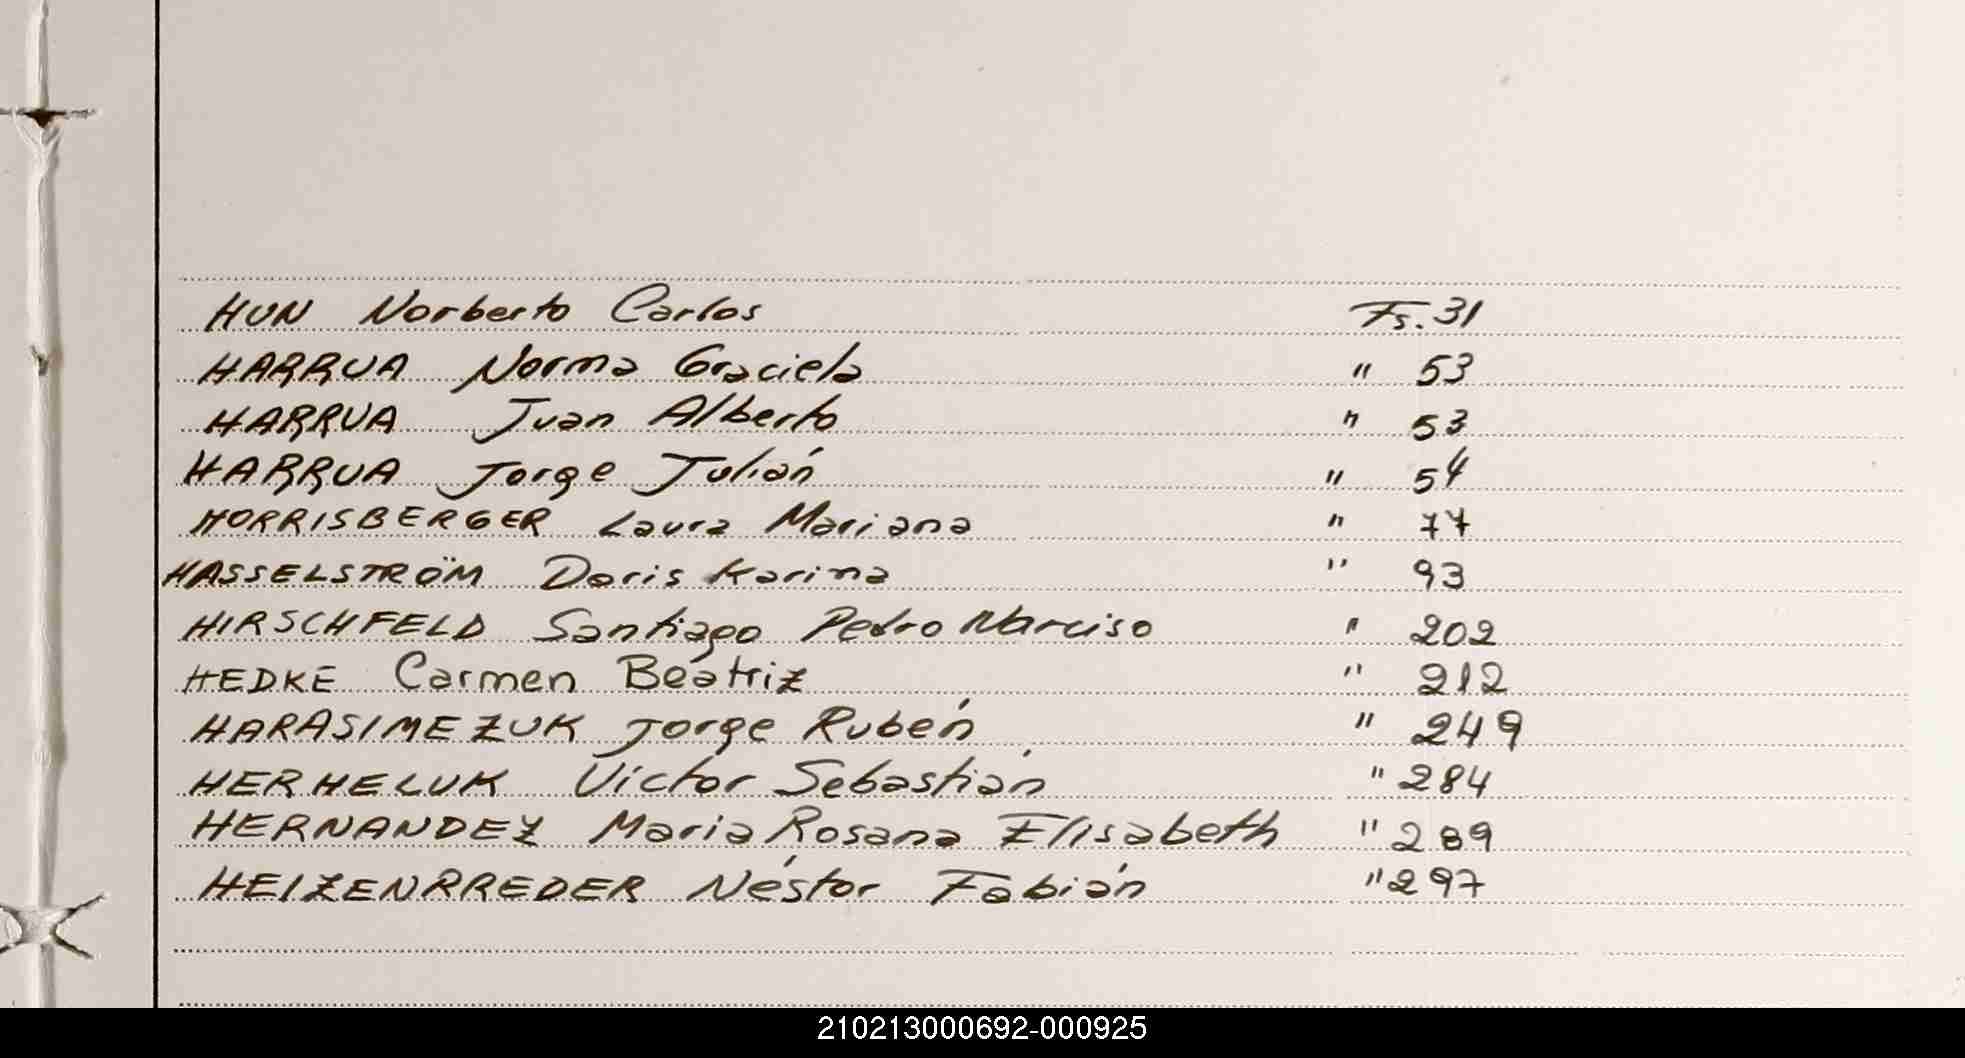 HUN Norberto Carlos Fs. 31
HARRUA Norma Graciela " 53
HARRUA Juan Alberto " 53
HARRUA Jorge Julián " 54
HORRISBERGER Laura Mariana " 77
HASSELSTRÖM Doris Karina " 93
HIRSCHFELD Santiago Pedro Narciso " 202
HEDKE Carmen Beatriz " 212
HARASIMEZUK Jorge Rubén " 249
HERHELUK Victor Sebastián " 284
HERNANDEZ Maria Rosana Elisabeth " 289
HEIZENRREDER Néstor Fabián " 297
210213000692-000925